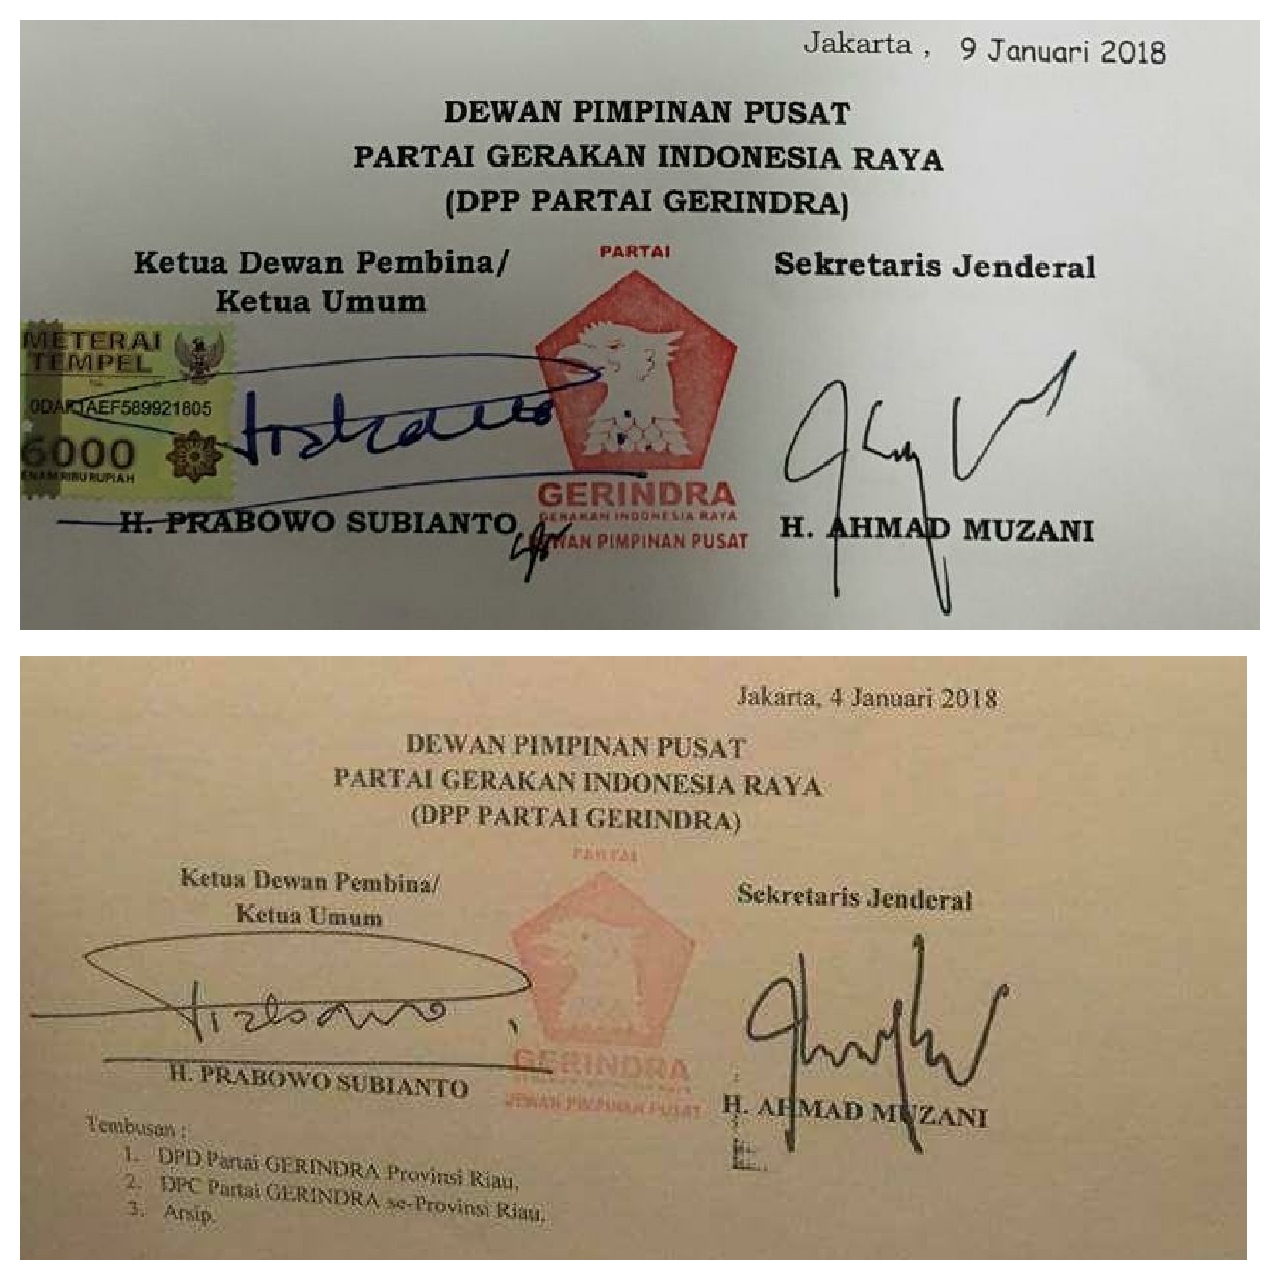 Jakarta , 9 Januari 2018
DEWAN PIMPINAN PUSAT
PARTAI GERAKAN INDONESIA RAYA
(DPP PARTAI GERINDRA)
Ketua Dewan Pembina/
Ketua Umum
PARTAI
Sekretaris Jenderal
METERAI
TEMPEL
589921805
6000
ENAM RIBU RUPIAH
GERINDRA
GERAKAN INDONESIA RAYA
PIMPINAN PUSAT
H. PRABOWO SUBIANTO
H. AHMAD MUZANI
Jakarta, 4 Januari 2018
DEWAN PIMPINAN PUSAT
PARTAI GERAKAN INDONESIA RAYA
(DPP PARTAI GERINDRA)
PARTAI
Ketua Dewan Pembina/
Ketua Umum
Sekretaris Jenderal
GERINDRA
DEWAN PIMPINAN PUSAT
H. PRABOWO SUBIANTO
H. AHMAD MUZANI
Tembusan :
1. DPD Partai GERINDRA Provinsi Riau,
2. DPC Partai GERINDRA se-Provinsi Riau,
3. Arsip.